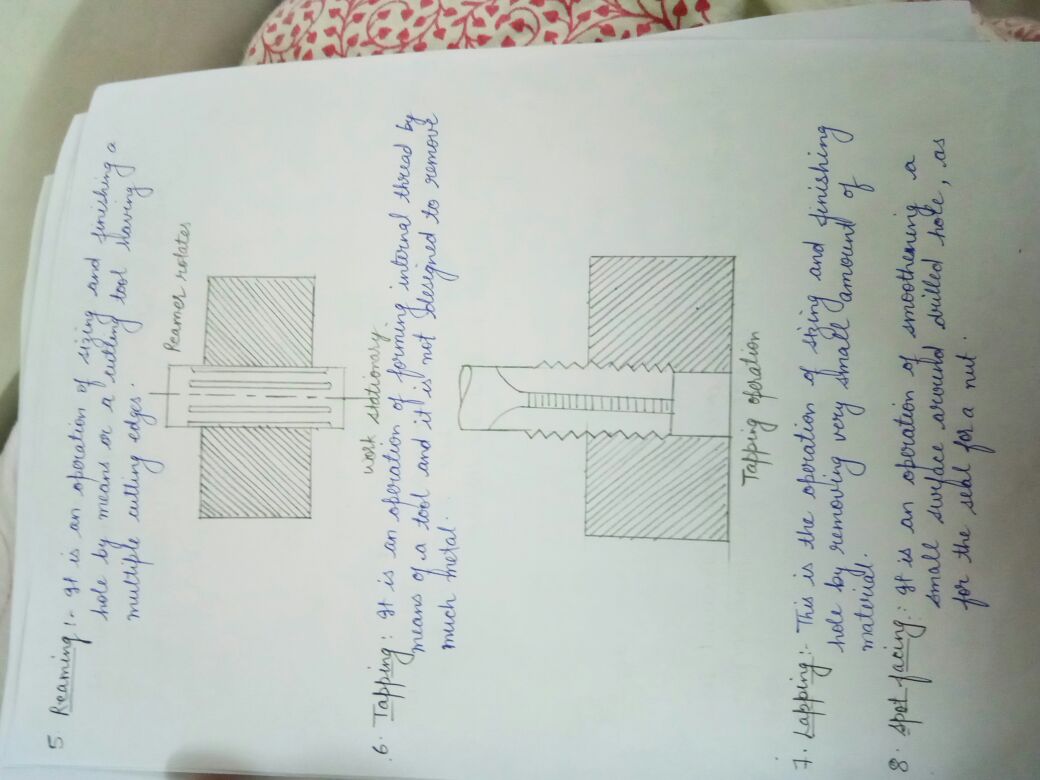 5 Reaming :- It is an operation of sizing and finishing a
hole by means or a cutting tool having
multiple cutting edges.
Reamer rotates
work stationary
6. Tapping : It is an operation of forming internal thread by
means of a tool and it is not designed to remove
much metal.
Tapping operation
7. Lapping :- This is the operation of sizing and finishing
hole by removing very small amount of
material.
8. Spot facing : It is an operation of smoothening a
small surface around drilled hole, as
for the seal for a nut.